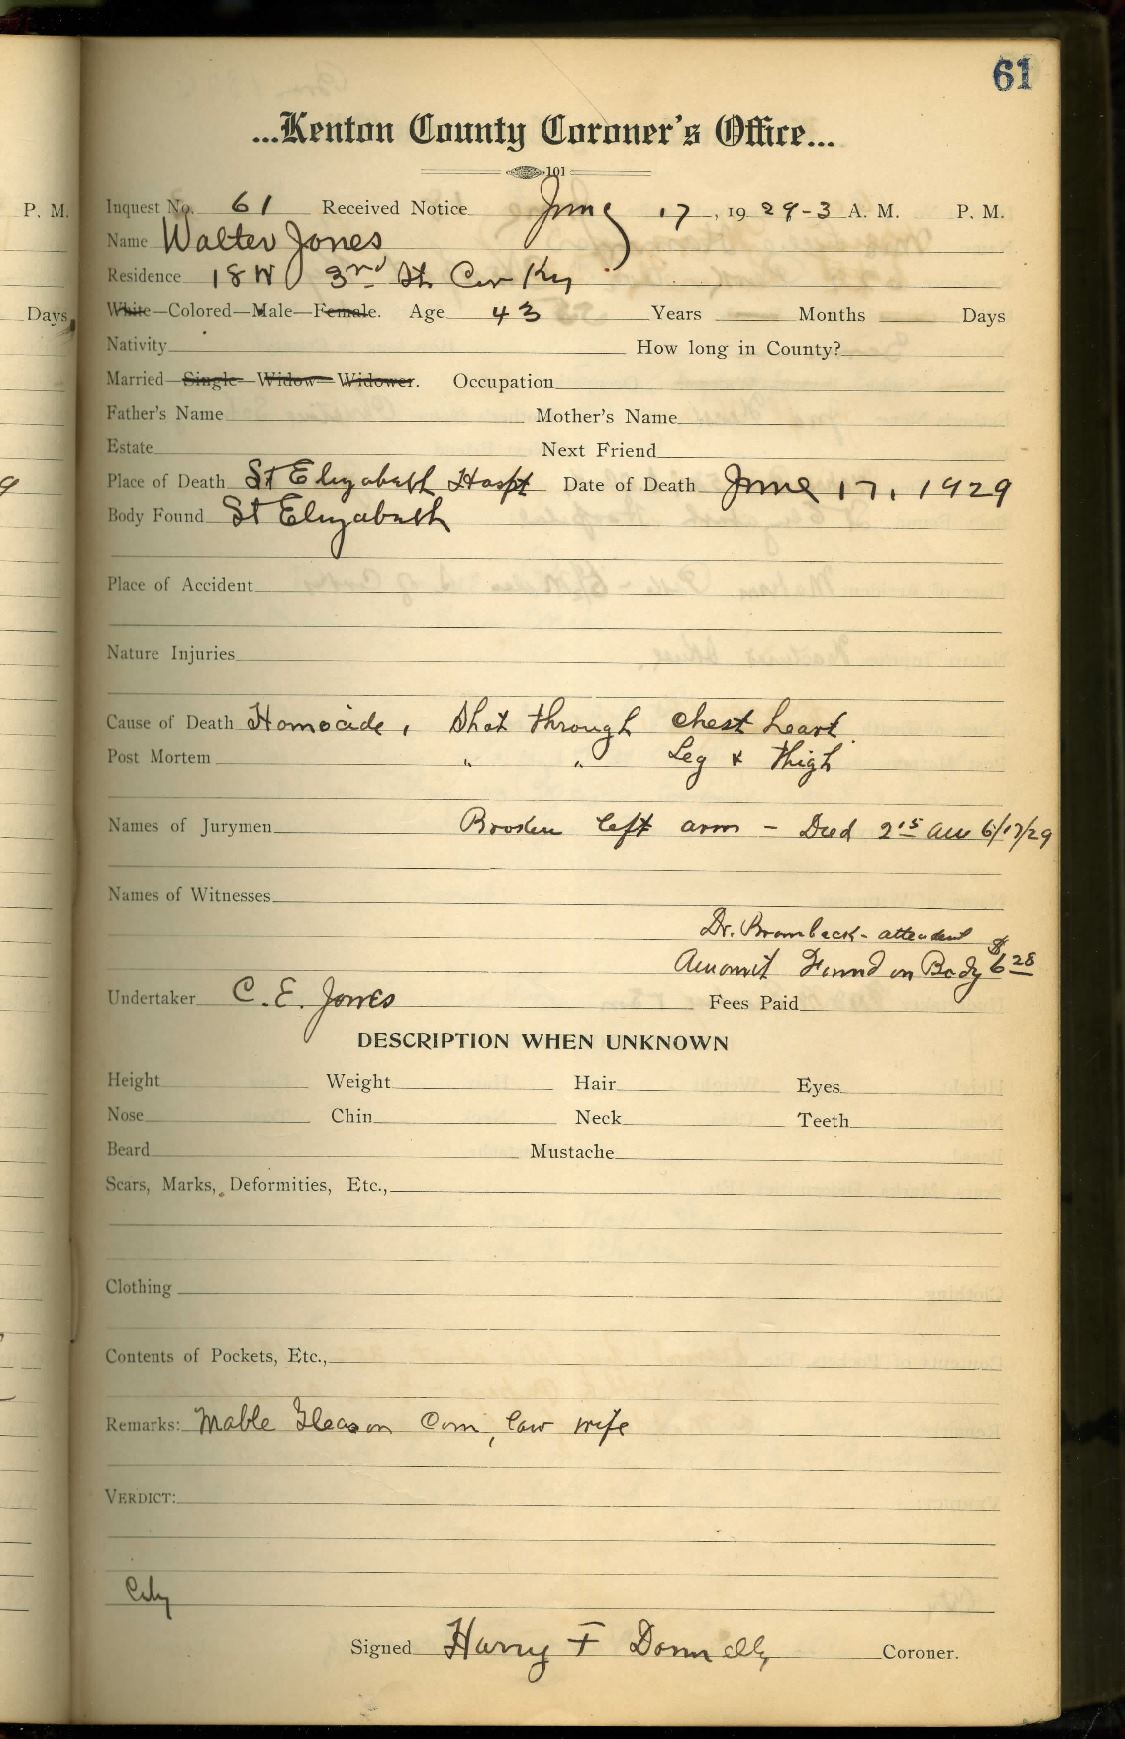 61
...Kenton County Coroner's Office...
101
P. M. Inquest No. 61 Received Notice June 17, 19 29-3 A. M. P. M.
Name Walter Jones
Residence 18 W 3rd St Cov Ky
Days White—Colored—Male—Female. Age 43 Years Months Days
Nativity How long in County?
Married—Single—Widow—Widower. Occupation
Father's Name Mother's Name
Estate Next Friend
Place of Death St Elizabeth Hospt Date of Death June 17, 1929
Body Found St Elizabeth
Place of Accident
Nature Injuries
Cause of Death Homocide, Shot through chest heart.
Post Mortem " " Leg & thigh
Names of Jurymen Broken left arm - Died 2 15 am 6/17/29
Names of Witnesses
Dr. - attendent
Amount Found on Body $6 28
Undertaker C. E. Jones Fees Paid
DESCRIPTION WHEN UNKNOWN
Height Weight Hair Eyes
Nose Chin Neck Teeth
Beard Mustache
Scars, Marks, Deformities, Etc.,
Clothing
Contents of Pockets, Etc.,
Remarks: Mable Gleason Com, law wife
VERDICT:
City
Signed Harry F Donnelly Coroner.